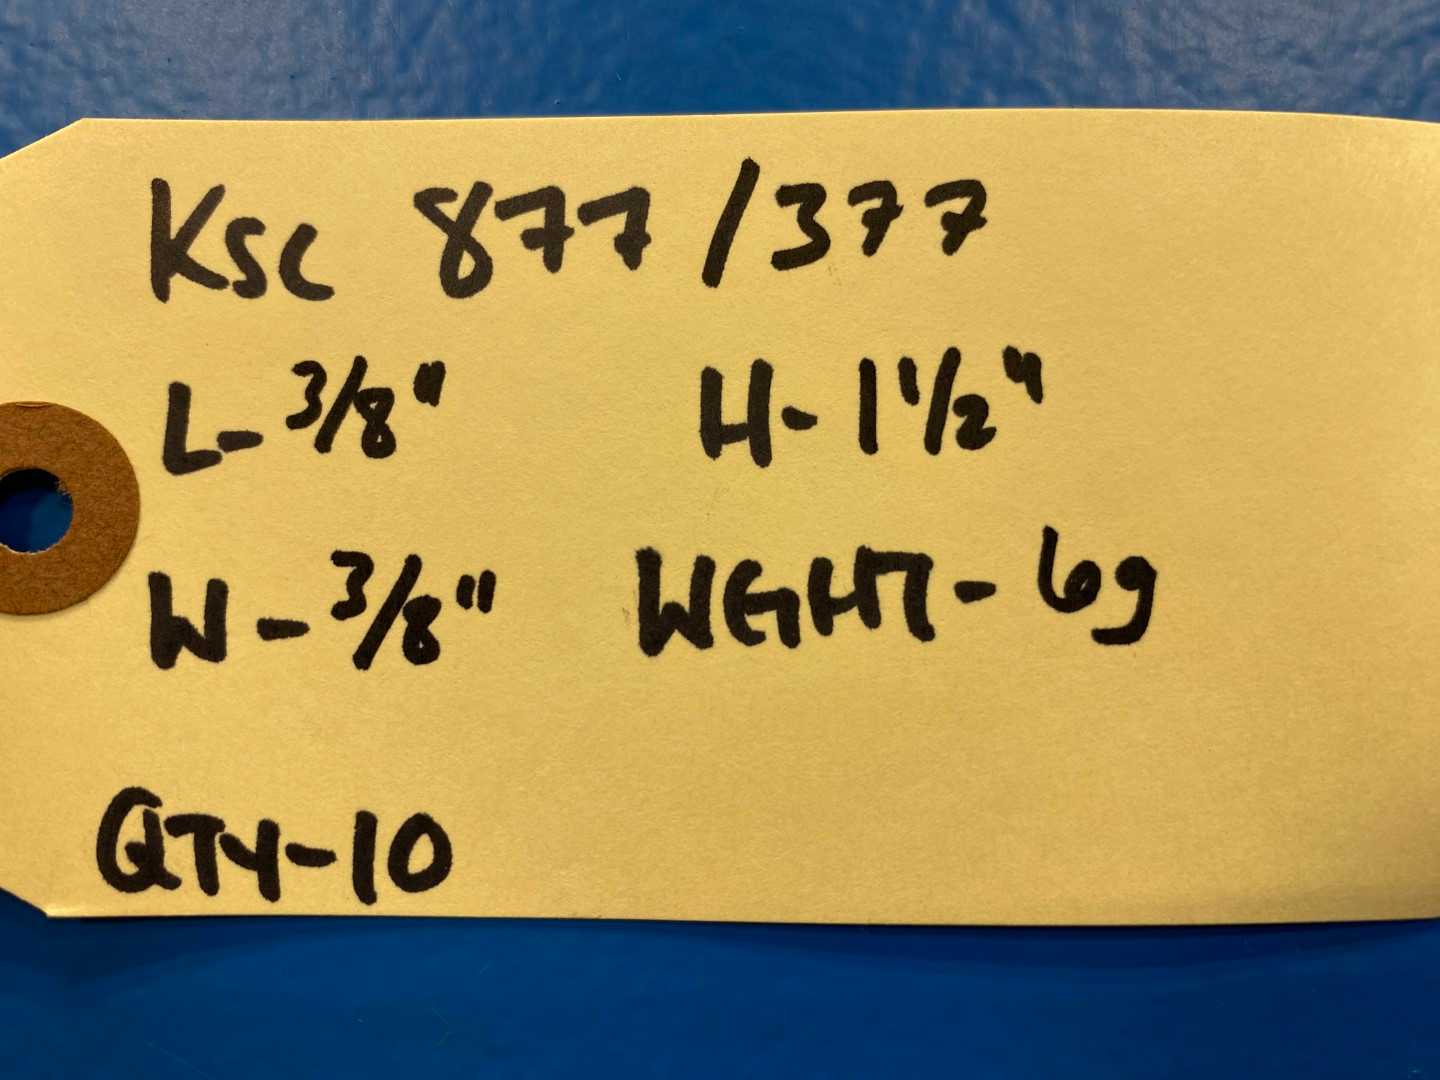 KSC 877/377
L-3/8" H-1 1/2"
W-3/8" WGHT-6g
QTY-10